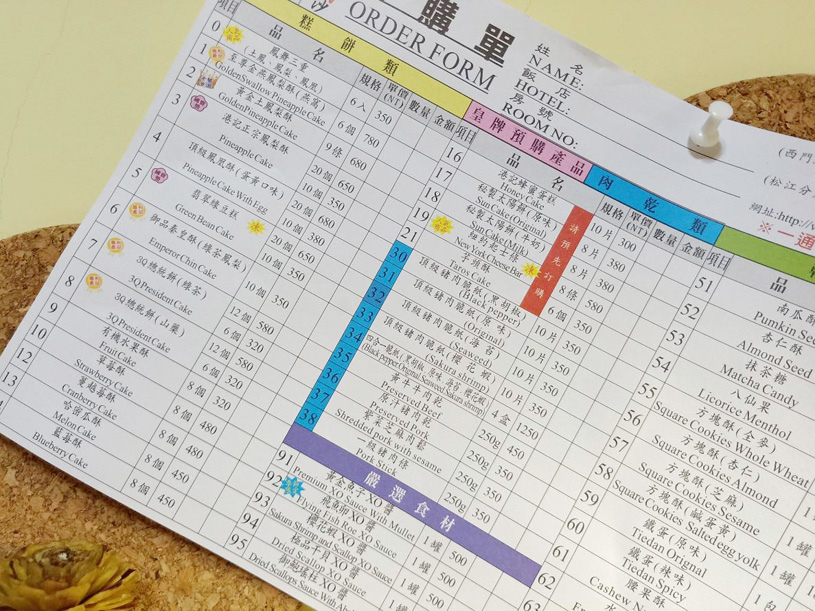 購單
ORDER FORM
姓 名
NAME:
飯 店
HOTEL:
房 號
ROOM NO:
(西門
(松江分
網址:http://w
※一通
項目
糕 餅 類
品 名 規格 單價(NT) 數量 金額
0 鳳舞三重 (土鳳、鳳梨、鳳凰) 6入 350
1 至尊金燕鳳梨酥(燕窩) GoldenSwallow Pineapple Cake 6個 780
2 黃金土鳳梨酥 Golden Pineapple Cake 9條 680
3 港記正宗鳳梨酥 Pineapple Cake 20個 650
10個 350
4 頂級鳳凰酥(蛋黃口味) Pineapple Cake With Egg 20個 680
10個 380
5 翡翠綠豆糕 Green Bean Cake 20個 650
10個 350
6 御品秦皇酥(綠茶鳳梨) Emperor Chin Cake 10個 350
7 3Q總統餅(綠茶) 3Q President Cake 12個 580
6個 320
8 3Q總統餅(山藥) 3Q President Cake 12個 580
6個 320
9 有機水果酥 Fruit Cake 8個 320
10 草莓酥 Strawberry Cake 8個 480
12 蔓越莓酥 Cranberry Cake 8個 480
13 哈密瓜酥 Melon Cake 8個 450
藍莓酥 Blueberry Cake 8個 450
項目
皇牌預購產品
品 名
16 港記蜂蜜蛋糕 Honey Cake 10片 300
17 秘製太陽餅(原味) Sun Cake (Original) 8片 380
18 秘製太陽餅(牛奶) Sun Cake (Milk) 8片 380
19 紐約起士條 New York Cheese Bar 8條 580
21 芋頭酥 Taros Cake 6個 350
請預先訂購
肉 乾 類
規格 單價(NT) 數量 金額 項目
30 頂級豬肉脆紙(黑胡椒) (Black pepper) 10片 350
31 頂級豬肉脆紙(原味) (Original) 10片 350
32 頂級豬肉脆紙(海苔) (Seaweed) 10片 350
33 頂級豬肉脆紙(櫻花蝦) (Sakura shrimp) 10片 350
34 (Black pepper, Original, Seaweed, Sakura shrimp) 4盒 1250
35 黃牛牛肉乾 Preserved Beef 250g 450
36 原汁豬肉乾 Preserved Pork 250g 350
37 紫菜芝麻肉鬆 Shredded pork with sesame 250g 350
38 一級豬肉條 Pork Stick 250g 350
嚴選食材
91 黃金魚子XO醬 Premium XO Sauce With Mullet 1罐 500
92 飛魚卵XO醬 Flying Fish Roe XO Sauce 1罐 500
93 櫻花蝦XO醬 Sakura Shrimp and Scallop XO Sauce 1罐
94 極品干貝XO醬 Dried Scallop XO Sauce
95 Dried Scallops Sauce With
品
51 南瓜酥 Pumkin Seed
52 杏仁酥 Almond Seed
53 抹茶糖 Matcha Candy
54 八仙果 Licorice Menthol
55 方塊酥(全麥) Square Cookies Whole Wheat
56 方塊酥(杏仁) Square Cookies Almond
57 方塊酥(芝麻) Square Cookies Sesame
58 方塊酥(鹹蛋黃) Square Cookies Salted egg yolk
59 鐵蛋(原味) Tiedan Orignal
60 鐵蛋(辣味) Tiedan Spicy
61 腰果酥 Cashew
62
63